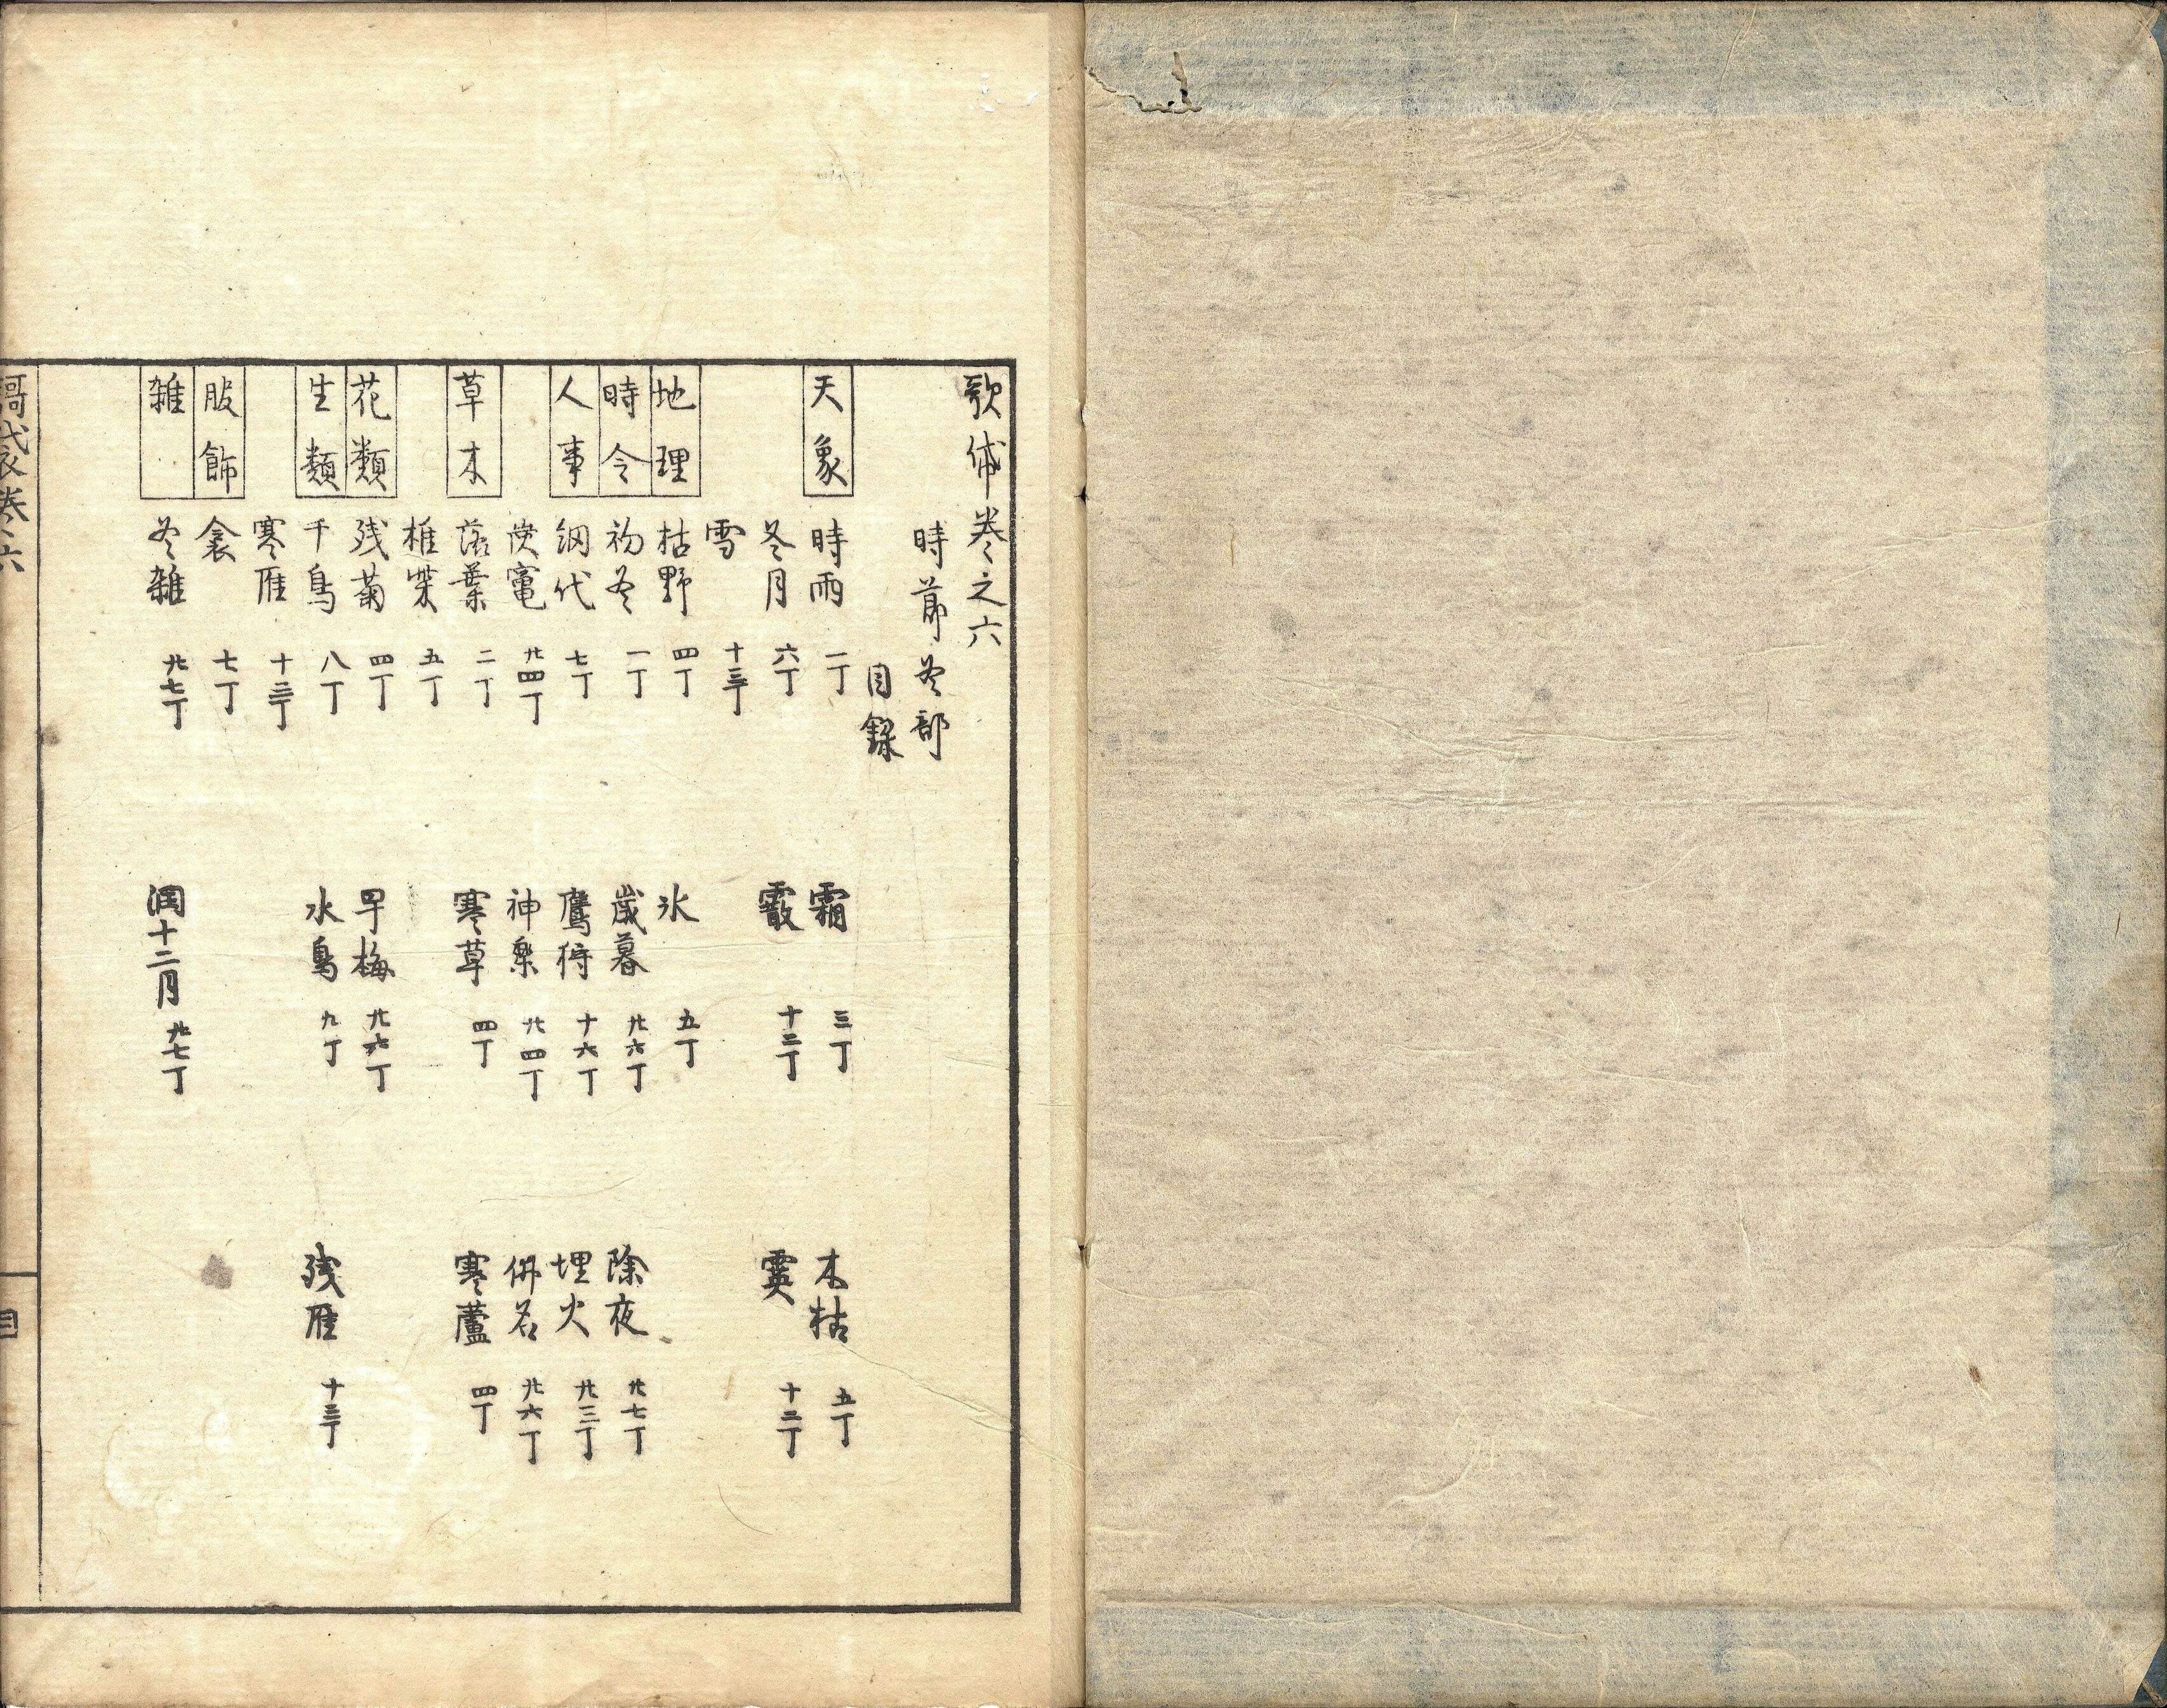 歌帒巻之六
時節冬部
目録
天象 時雨 一丁 霜 三丁 木枯 五丁
冬月 六丁 霰 十二丁 霙 十二丁
雪 十三丁
地理 枯野 四丁 氷 五丁
時令 初冬 一丁 歳暮 廿六丁 除夜 廿七丁
人事 網代 七丁 鷹狩 十六丁 埋火 廿三丁
炭竃 廿四丁 神楽 廿四丁 佛名 廿六丁
草木 落葉 二丁 寒草 四丁 寒蘆 四丁
椎柴 五丁
花類 残菊 四丁 早梅 廿六丁
生類 千鳥 八丁 水鳥 九丁 残雁 十三丁
寒雁 十三丁
服飾 衾 七丁
雑 冬雑 廿七丁 閏十二月 廿七丁
謌袋巻六 目